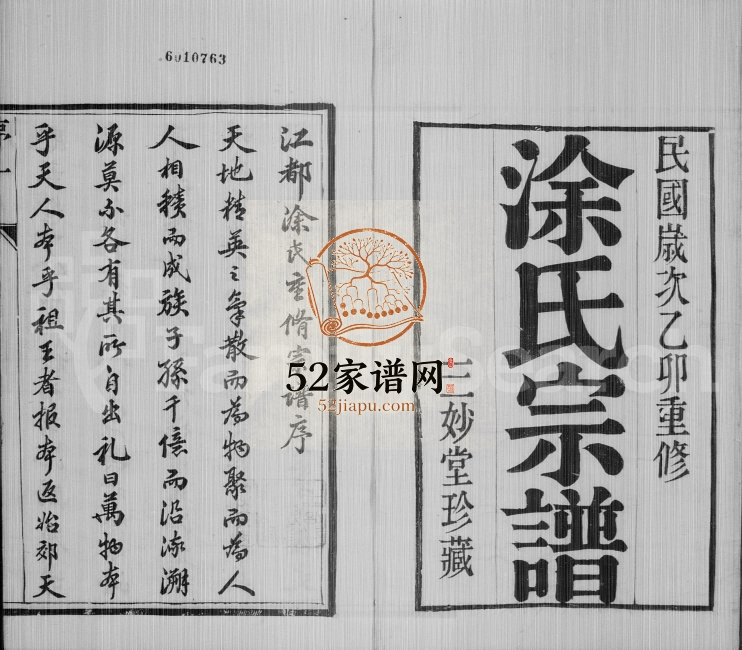 6010763
民國歲次乙卯重修
涂氏宗譜
三妙堂珍藏
江都涂氏重脩宗譜序
天地精英之氣散而為物聚而為人
人相積而成族子孫千億而沿流溯
源莫不各有其所自出礼曰萬物本
乎天人本乎祖王者報本返始郊天
序一
52家谱网
52jiapu.com